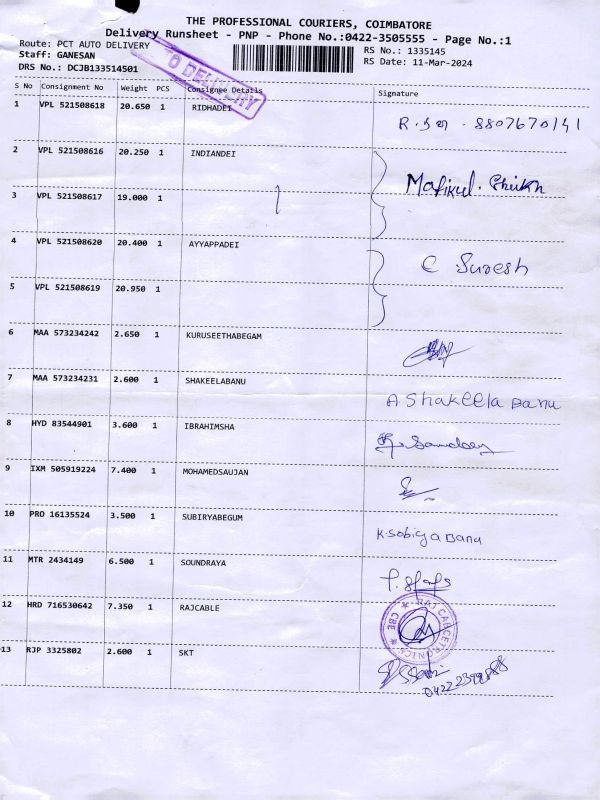 THE PROFESSIONAL COURIERS, COIMBATORE
Delivery Runsheet - PNP - Phone No.:0422-3505555 - Page No.:1
Route: PCT AUTO DELIVERY
RS No.: 1335145
Staff: GANESAN
RS Date: 11-Mar-2024
DRS No.: DCJB133514501
TO DELIVERY
S No Consignment No Weight PCS Consignee Details Signature
1 VPL 521508618 20.650 1 RIDHADEI 8807670141
2 VPL 521508616 20.250 1 INDIANDEI
Mafikul
3 VPL 521508617 19.000 1
4 VPL 521508620 20.400 1 AYYAPPADEI
C Suresh
5 VPL 521508619 20.950 1
6 MAA 573234242 2.650 1 KURUSEETHABEGAM
7 MAA 573234231 2.600 1 SHAKEELABANU A Shakeela Banu
8 HYD 83544901 3.600 1 IBRAHIMSHA
9 IXM 505919224 7.400 1 MOHAMEDSAUJAN
10 PRO 16135524 3.500 1 SUBIRYABEGUM K sobiya Banu
11 MTR 2434149 6.500 1 SOUNDRAYA
12 HRD 716530642 7.350 1 RAJCABLE
CBE
13 RJP 3325802 2.600 1 SKT